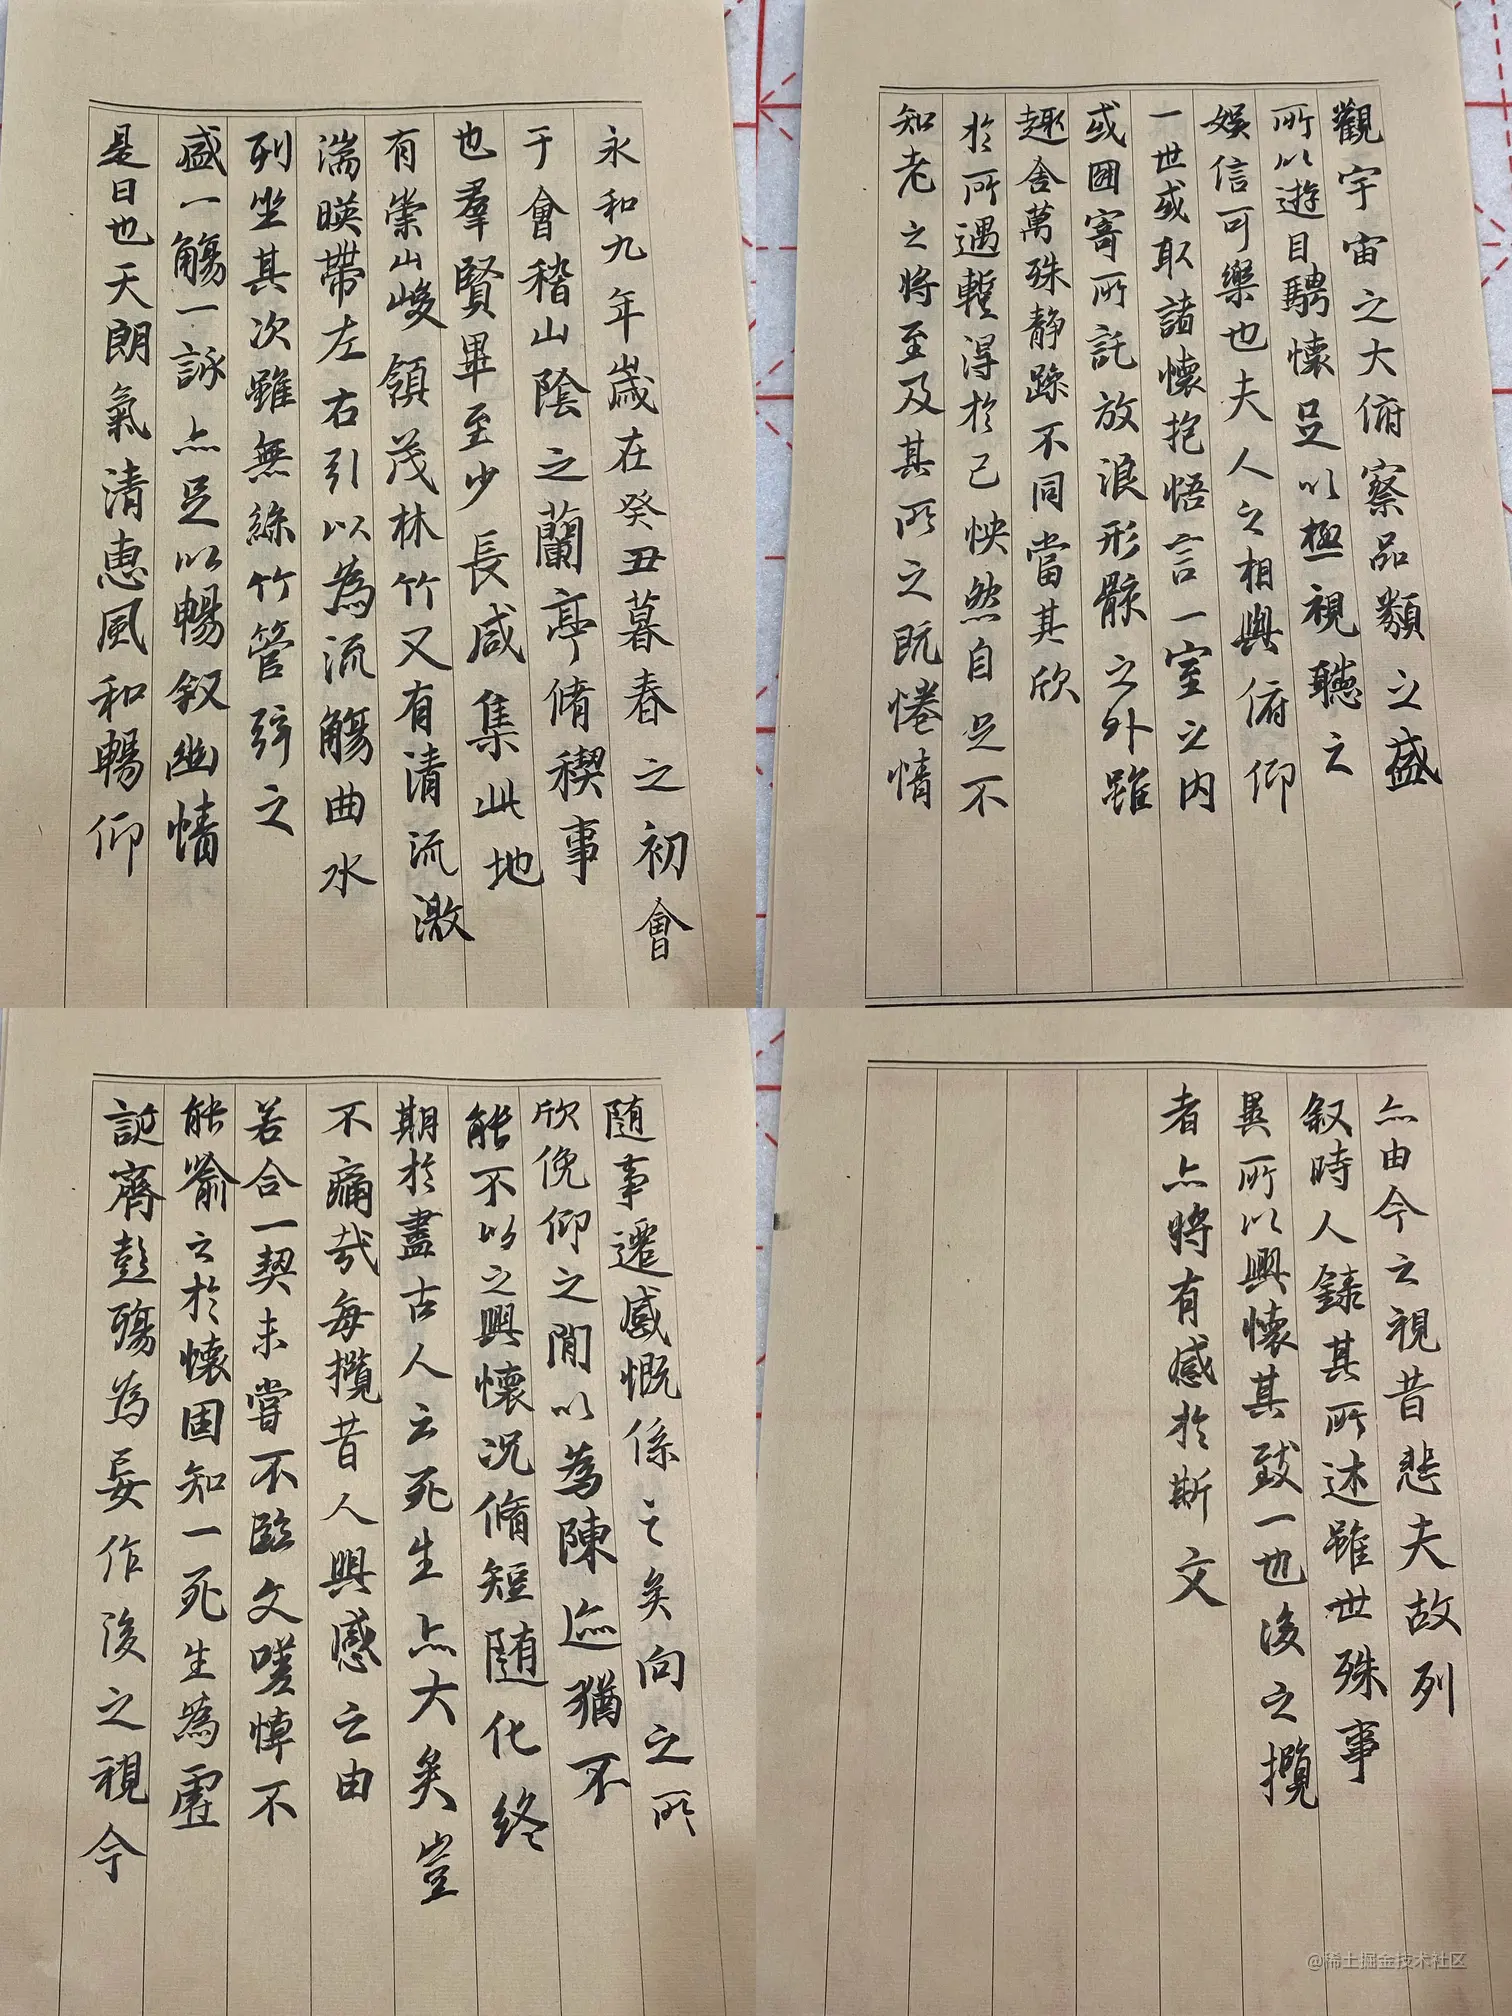 永和九年歲在癸丑暮春之初會
于會稽山陰之蘭亭脩稧事
也羣賢畢至少長咸集此地
有崇山峻領茂林竹又有清流激
湍暎帶左右引以為流觴曲水
列坐其次雖無絲竹管弦之
盛一觴一詠亦足以暢叙幽情
是日也天朗氣清惠風和暢仰
觀宇宙之大俯察品類之盛
所以遊目騁懷足以極視聽之
娛信可樂也夫人之相與俯仰
一世或取諸懷抱悟言一室之內
或因寄所託放浪形骸之外雖
趣舍萬殊静躁不同當其欣
於所遇蹔得於己怏然自足不
知老之將至及其所之既惓情
随事遷感慨係之矣向之所
欣俛仰之閒以為陳迹猶不
能不以之興懷況脩短隨化終
期於盡古人云死生亦大矣豈
不痛哉每攬昔人興感之由
若合一契未嘗不臨文嗟悼不
能喻之於懷固知一死生為虛
誕齊彭殤為妄作後之視今
亦由今之視昔悲夫故列
叙時人錄其所述雖世殊事
異所以興懷其致一也後之攬
者亦將有感於斯文
@稀土掘金技术社区